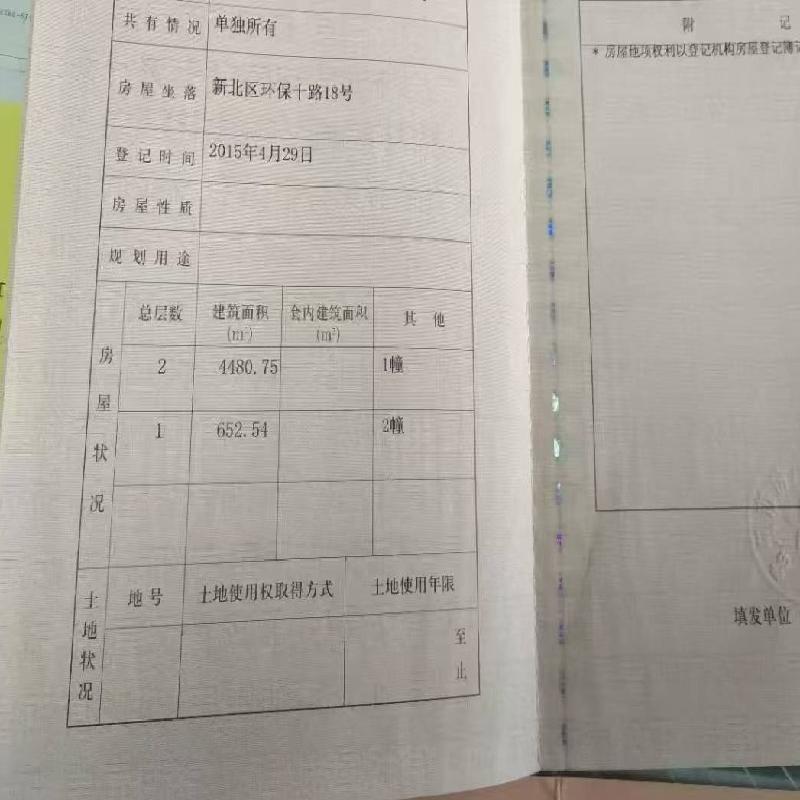 共有情况 单独所有
房屋坐落 新北区环保十路18号
登记时间 2015年4月29日
房屋性质
规划用途
房屋状况
总层数 建筑面积(m²) 套内建筑面积(m²) 其他
2 4480.75 1幢
1 652.54 2幢
土地状况
地号 土地使用权取得方式 土地使用年限
至
止
附 记
* 房屋他项权利以登记机构房屋登记簿记
填发单位